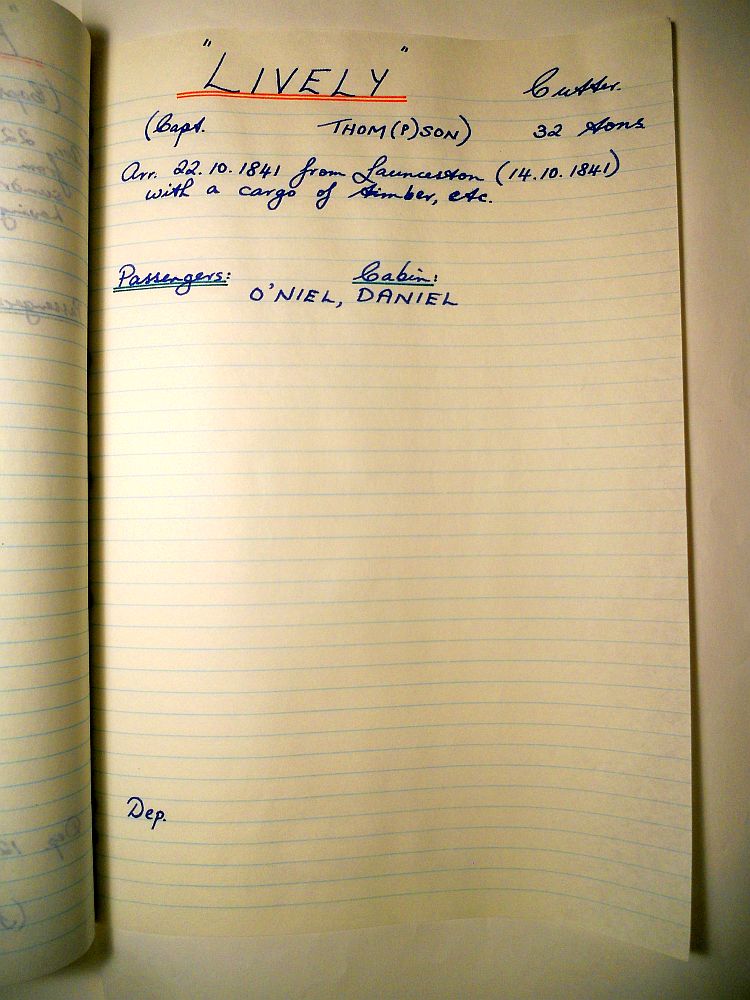 "LIVELY" Cutter.
(Capt. THOM(P)SON) 32 tons
Arr. 22.10.1841 from Launceston (14.10.1841)
with a cargo of timber, etc.
Passengers: Cabin:
O'NIEL, DANIEL
Dep.